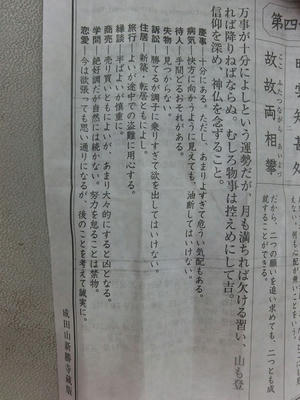 第四
故故両相攀
だから、二つの願いを追い求めても、二つとも成
ができる。
万事が十分によしという運勢だが、月も満ちれば欠ける習い、山も登
れば降りねばならぬ。むしろ物事は控えめにして吉。
信仰を深め、神仏を念ずること。
慶事 十分にある。ただし、あまりよすぎて危うい気配もある。
病気 快方に向かうように見えても、油断してはいけない。
待人 手間どるおそれがある。
失物 見つからない。
訴訟 勝てるが調子に乗りすぎて欲を出してはいけない。
住居 新築・転居ともによし。
旅行 よいが途中での盗難に用心する。
縁談 半ばよいが慎重に。
商売 売り買いともによいが、あまり大な的にすると凶となる。
学問 絶好調だが自然には続かない。努力を怠ることは禁物。
恋愛 今は欲張っても思い通りになるが、後のことを考えて誠実に。
成田山新勝寺蔵版